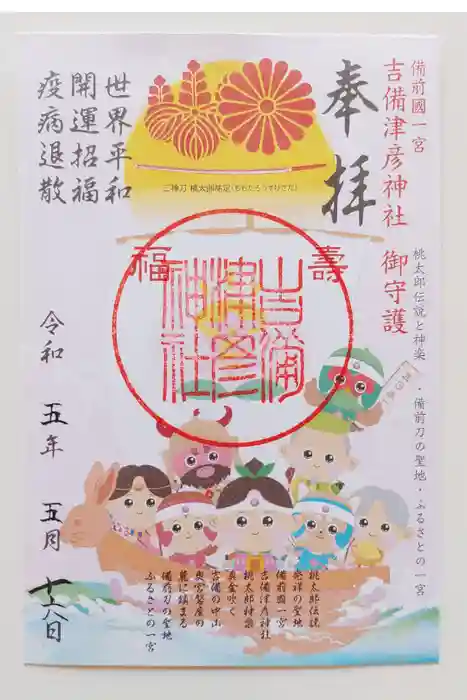 備前國一宮
吉備津彦神社 御守護
桃太郎伝説と神楽・備前刀の聖地・ふるさとの一宮
奉拝
壽
福
吉備
津彦
神社
世界平和
開運招福
疫病退散
令和 五年 五月 十六日
桃太郎伝説
発祥の聖地
備前國一宮
吉備津彦神社
黄金吹く
桃太郎神楽
吉備の中山
奥宮磐座の
麓に鎮まる
備前刀の聖地
ふるさとの一宮